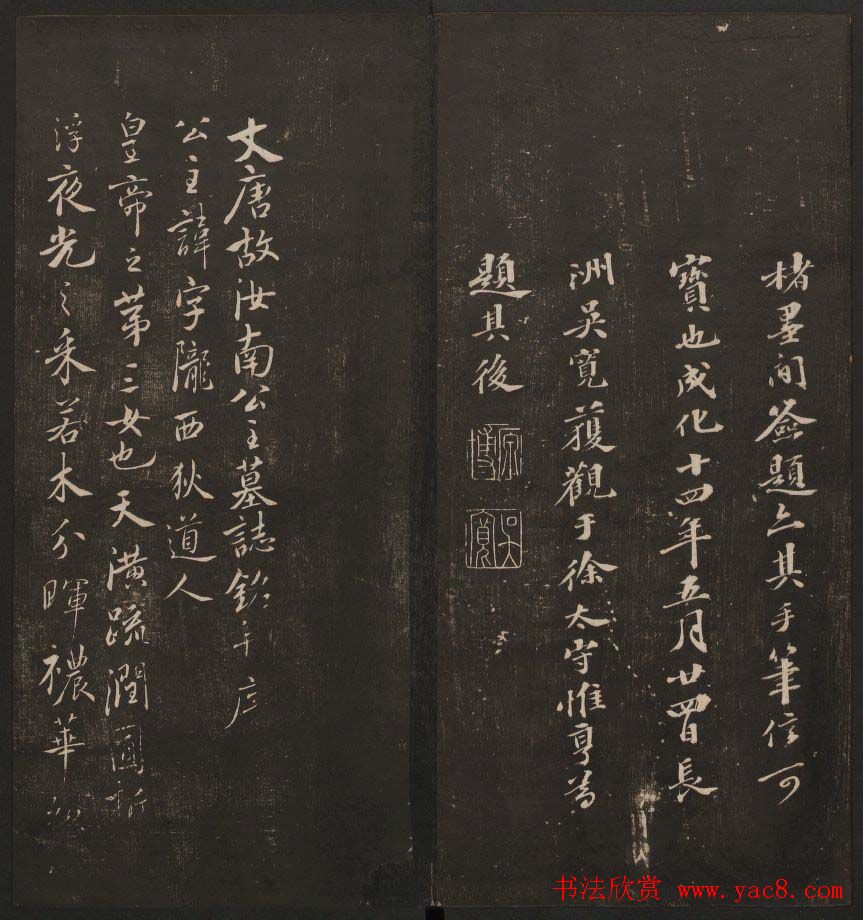 楮墨間簽題亦其手筆信可
寶也成化十四年五月廿四日長
洲吳寬獲觀于徐太守惟亨
題其後
原博
吳寬
大唐故汝南公主墓誌銘并序
公主諱字隴西狄道人
皇帝之苐三女也天潢疏潤圓折
浮夜光之采若木分暉襛華
书法欣赏 www.yac8.com